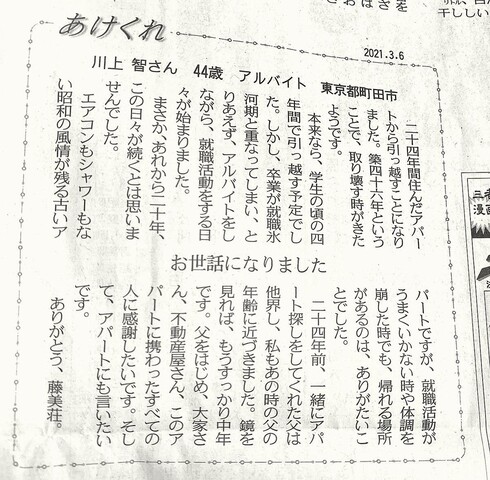 あけくれ
2021.3.6
川上 智さん 44歳 アルバイト 東京都町田市
お世話になりました
二十四年間住んだアパー
トから引っ越すことになり
ました。築四十六年という
ことで、取り壊す時がきた
ようです。
本来なら、学生の頃の四
年間で引っ越す予定でし
た。しかし、卒業が就職氷
河期と重なってしまい、と
りあえず、アルバイトをし
ながら、就職活動をする日
々が始まりました。
まさか、あれから二十年、
この日々が続くとは思いま
せんでした。
エアコンもシャワーもな
い昭和の風情が残る古いア
パートですが、就職活動が
うまくいかない時や体調を
崩した時でも、帰れる場所
があるのは、ありがたいこ
とでした。
二十四年前、一緒にアパ
ート探しをしてくれた父は
他界し、私もあの時の父の
年齢に近づきました。鏡を
見れば、もうすっかり中年
です。父をはじめ、大家さ
ん、不動産屋さん、このア
パートに携わったすべての
人に感謝したいです。そし
て、アパートにも言いたい
です。
ありがとう、藤美荘。
漫画